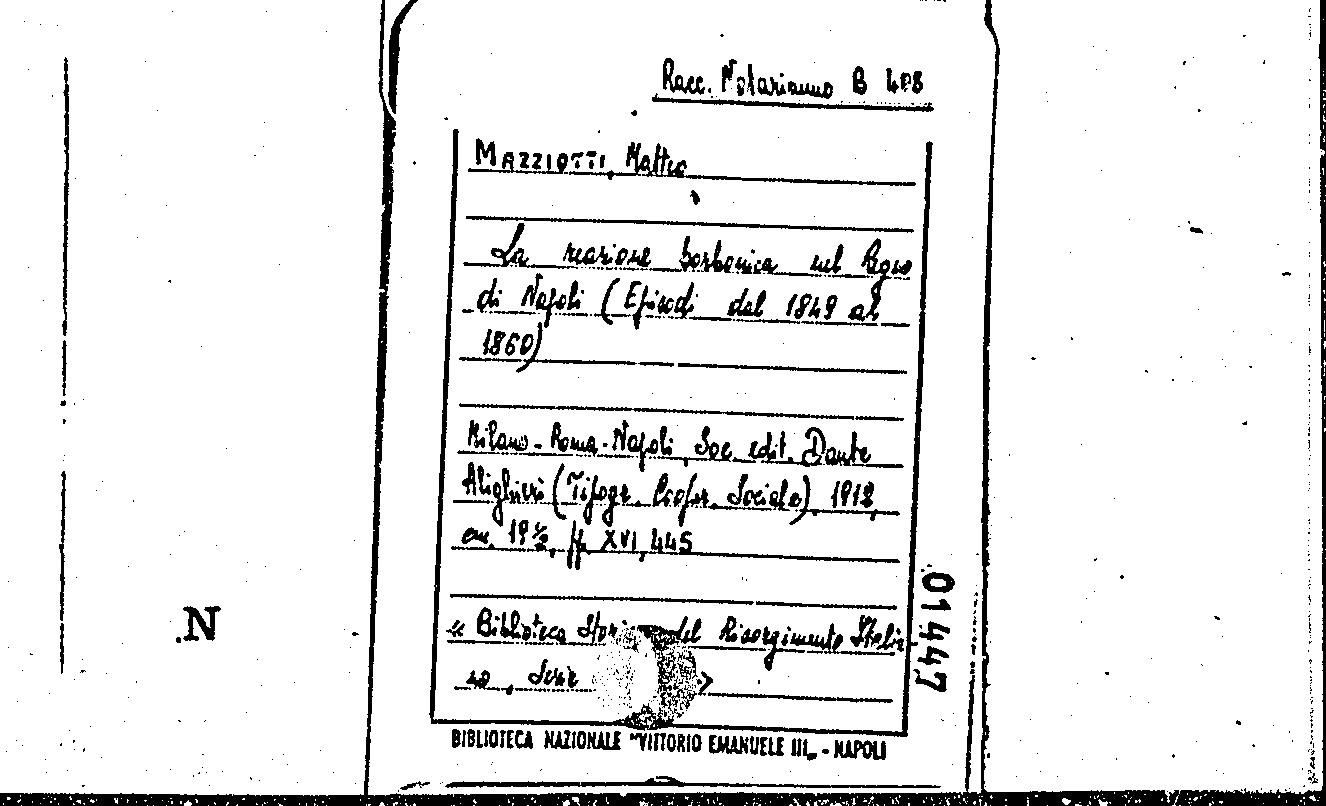 Racc. Notarianno B 408
MAZZIOTTI, Matteo
La reazione borbonica nel Regno
di Napoli (Episodi dal 1849 al
1860)
Milano - Roma - Napoli, Soc. edit. Dante
Alighieri (Tipogr. Cooper. Sociale), 1912,
cm. 19½, pp. XVI, 445
« Biblioteca del Risorgimento Italia
no, Serie »
BIBLIOTECA NAZIONALE "VITTORIO EMANUELE III„ - NAPOLI
01447
.N